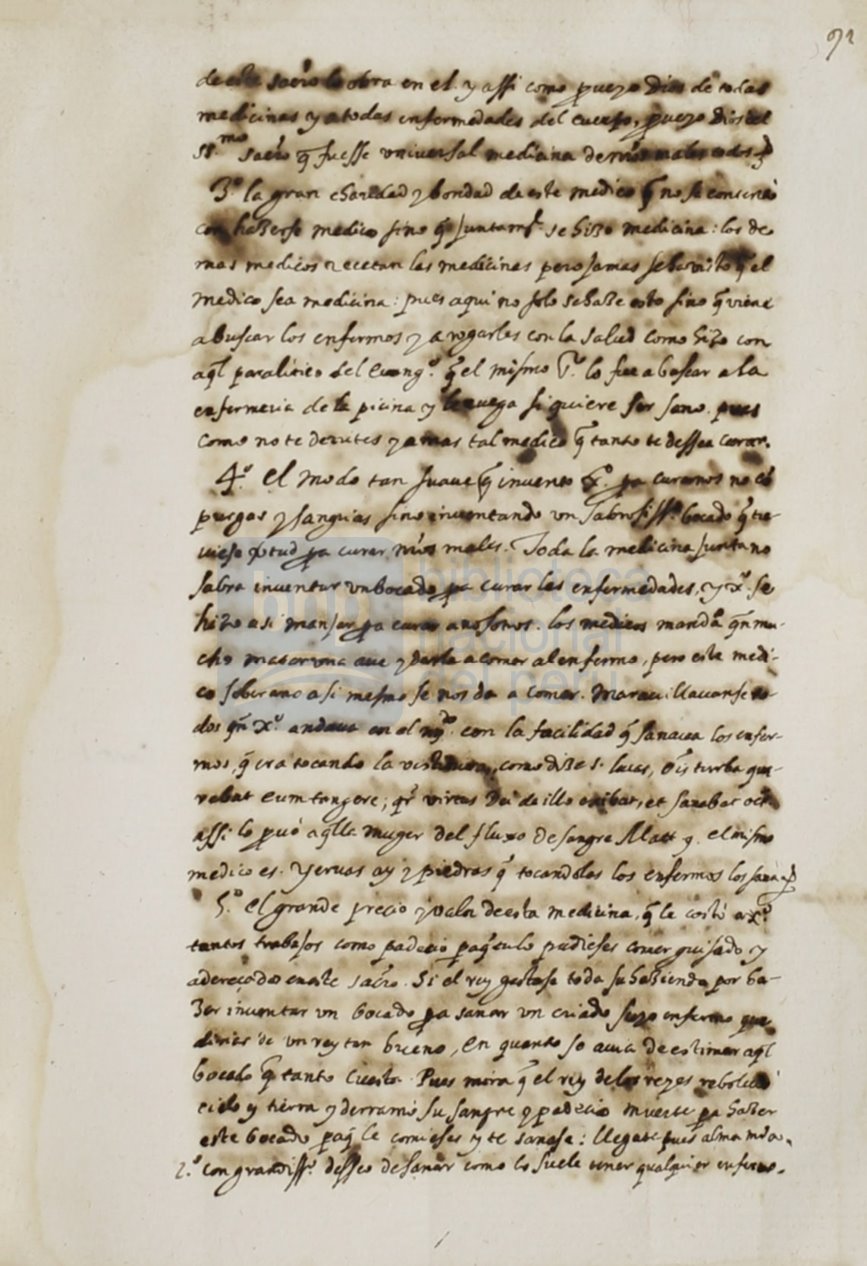 92
de este sacrº lo obra en el. y assi como proveyo Dios de todas
medicinas y a todas enfermedades del cuerpo, proveyo Dios el
SS.mo sacrº q̃ fuesse universal medicina de nr̃os males todos
3º la gran charidad y bondad de este medico q̃ no se contentó
con hazerse medico sino q̃ juntamte se hizo medicina: los de
mas medicos recetan las medicinas pero jamas se ha visto q̃ el
medico sea medicina: pues aqui no solo se haze esto sino q̃ viene
a buscar los enfermos y a rogarles con la salud como hizo con
aql̃ paralitico del Evangº. q̃ el mismo Sr. lo fue a buscar a la
enfermeria de la picina y le ruega si quiere ser sano. pues
como no te derrites y amas tal medico q̃ tanto te dessea curar.
4º. el modo tan suave q̃ invento Xº. pa curarnos no cõ
purgas y sangrias sino inventando un sabrosissº. bocado q̃ tu-
viese virtud pa curar nr̃os males. Toda la medicina junta no
sabra inventar un bocado pa curar las enfermedades, y Xº. se
hizo a si manjar pa curar a nosotros. los medicos mandã
cho mas una ave y darla a comer al enfermo, pero este medi-
co soberano a si mesmo se nos da a comer. Maravillavanse to-
dos qñ Xº. andava en el mũdo. con la facilidad q̃ sanava los enfer-
mos, q̃ era tocando la vestidura, como dize S. Lucas, oĩs turba que-
rebat eum tangere; qr̃ virtus Dei de illo exibat, et sanabat oẽs
assi lo provó aqlla muger del fluxo de sangre Matt 9. el mismo
medico es. Yervas ay y piedras q̃ tocandolas los enfermos los sana
5.º el grande precio y valor de esta medicina, q̃ le costó a Xº.
tantos trabajos como padecio paq̃ tu lo pudieses comer guisado y
aderecado en este sacrº. Si el rey gastase toda su hazienda por ha-
zer inventar un bocado pa sanar un criado suyo enfermo que
dirias de un rey tan bueno, en quanto se avia de estimar aql̃
bocado q̃ tanto cuesta. Pues mira q̃ el rey de los reyes rebolvio
cielo y tierra y derramó su sangre y padecio muerte pa hazer
este bocado paq̃ le comieses y te sanase: llegate pues alma mia.
2.º con grandissº. desseo de sanar como lo suele tener qualquier enfermo.
biblioteca
nacional
del perú